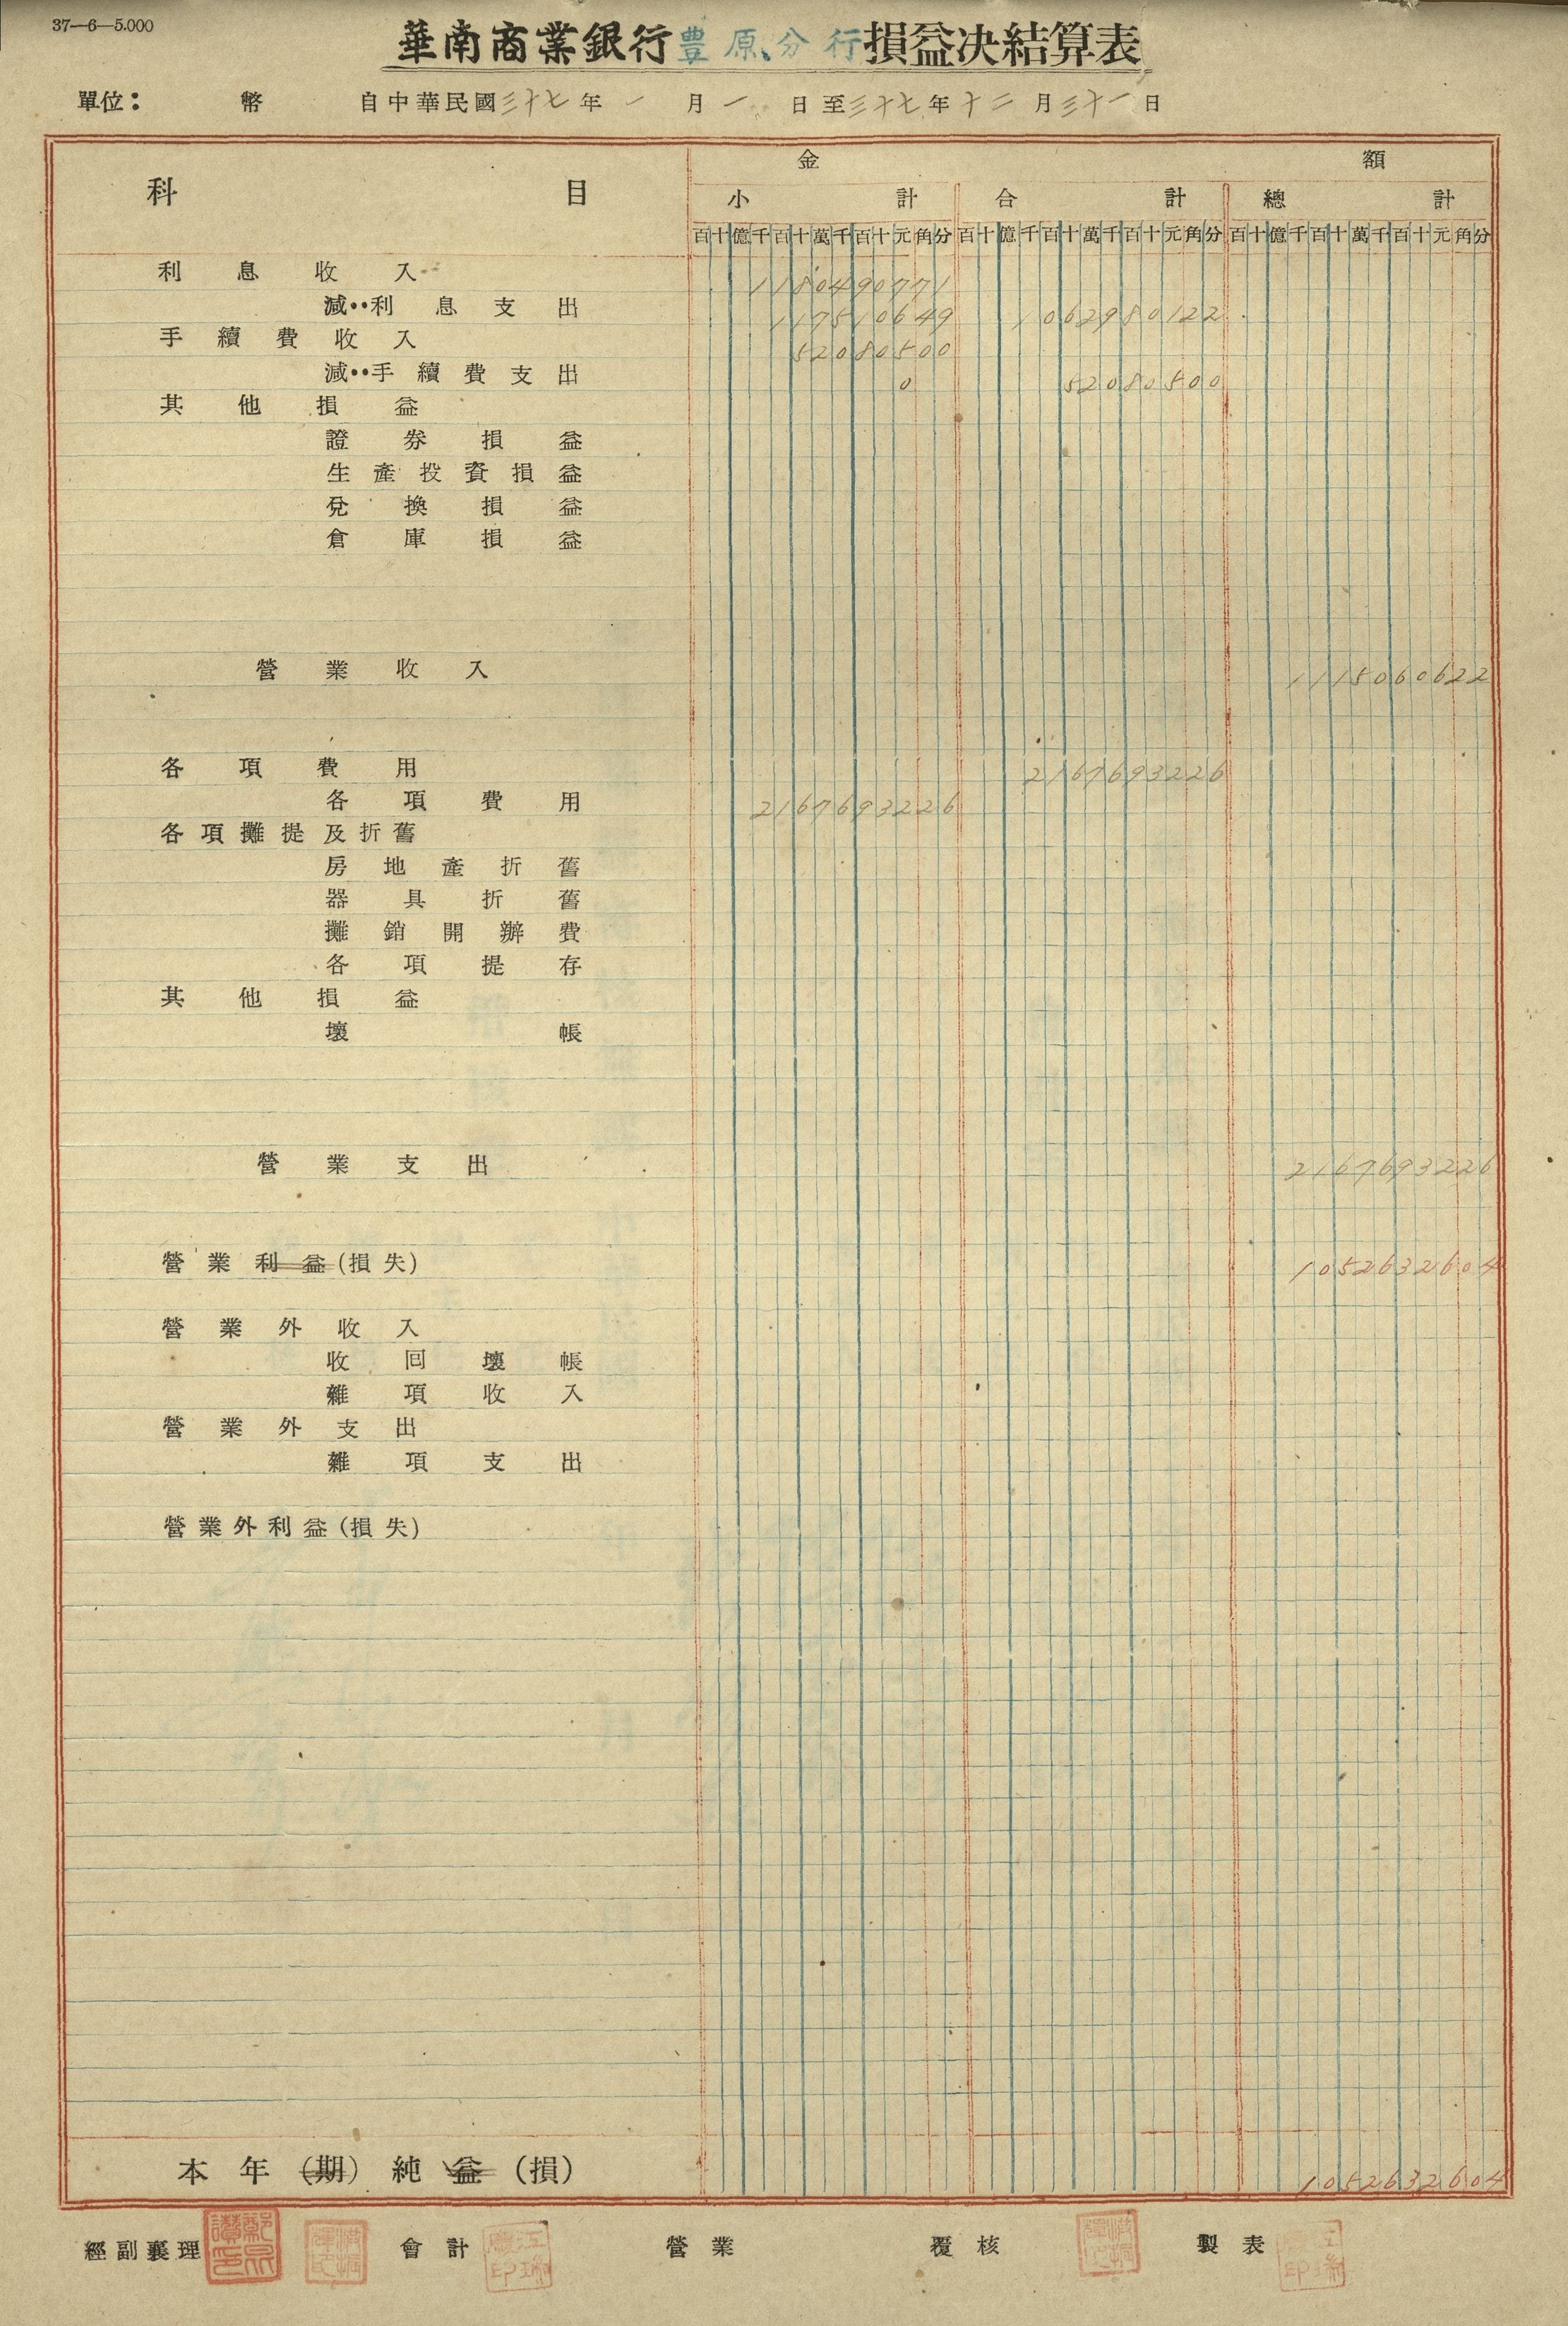 37—6—5.000
華南商業銀行豊原分行損益決結算表
單位: 幣 自中華民國三十七年一月一日至三十七年十二月三十一日
科目 金額
小計 合計 總計
百十億千百十萬千百十元角分 百十億千百十萬千百十元角分 百十億千百十萬千百十元角分
利息收入 1180490771
減··利息支出 117510649 1062980122
手續費收入 52080500
減··手續費支出 0 52080500
其他損益
證券損益
生產投資損益
兌換損益
倉庫損益
營業收入 1115060622
各項費用 2167693226
各項費用 2167693226
各項攤提及折舊
房地產折舊
器具折舊
攤銷開辦費
各項提存
其他損益
壞帳
營業支出 2167693226
營業利益(損失) 1052632604
營業外收入
收回壞帳
雜項收入
營業外支出
雜項支出
營業外利益(損失)
本年(期)純益(損) 1052632604
經副襄理 會計 營業 覆核 製表